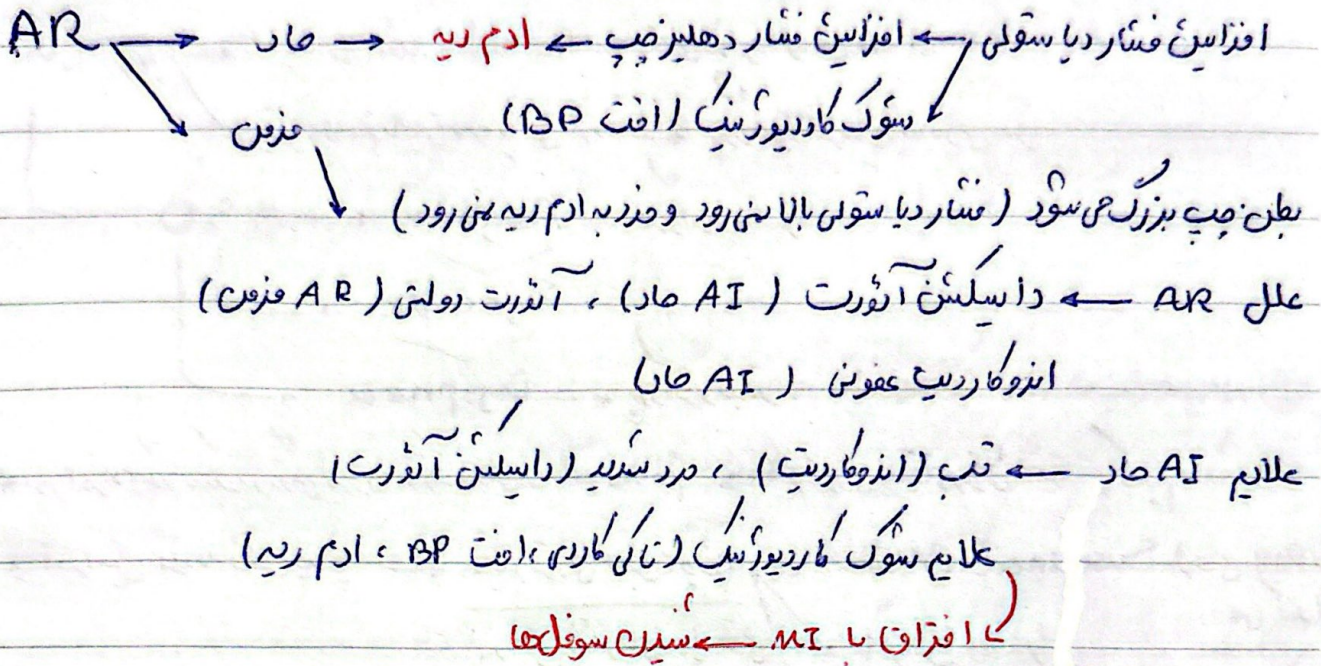 AR → حاد → افزایش فشار دیاستولی ← افزایش فشار دهلیز چپ ← ادم ریه
شوک کاردیوژنیک (افت BP)
مزمن
بطن چپ بزرگ می شود (فشار دیاستولی بالا نمی رود و فرد به ادم ریه نمی رود)
علل AR ← دایسکشن آئورت (AI حاد)، آئورت دولتی (AR مزمن)
اندوکاردیت عفونی (AI حاد)
علایم AI حاد ← تب (اندوکاردیت)، درد شدید (دایسکشن آئورت)
علایم شوک کاردیوژنیک (تاکی کاردی، افت BP، ادم ریه)
افتراق با MI ← شنیدن سوفل ها